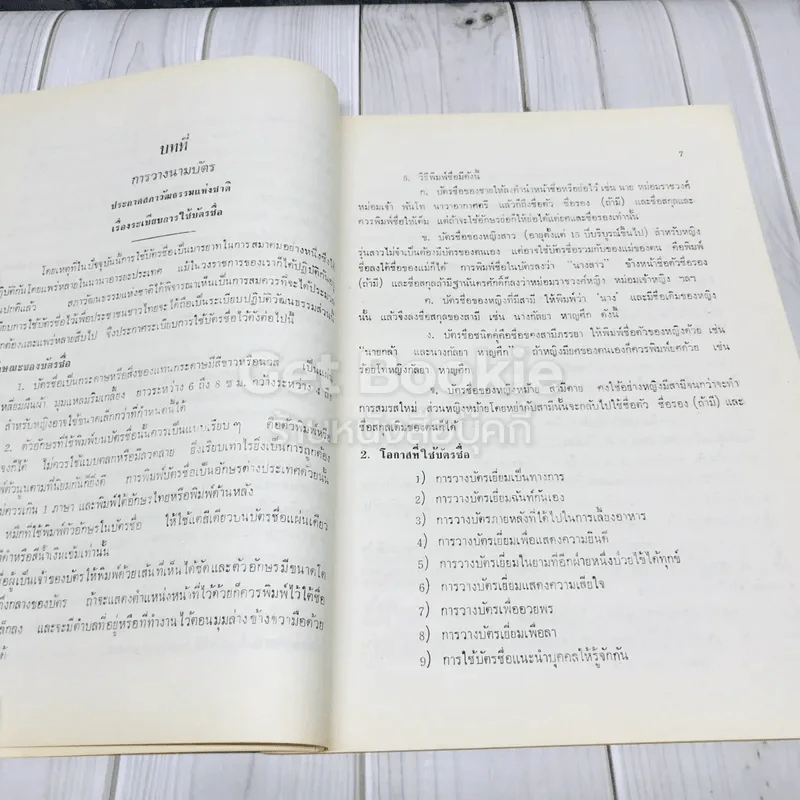 บทที่
การวางนามบัตร
ประกาศสภาวัฒธรรมแห่งชาติ
เรื่องระเบียบการใช้บัตรชื่อ
โดยเหตุที่ในปัจจุบันนี้การใช้บัตรชื่อเป็นมารยาทในการสมาคมอย่างหนึ่งซึ่ง
ปฏิบัติกันโดยแพร่หลายในนานาอารยะประเทศ แม้ในวงราชการของเราก็ได้ปฏิบัติ
ปกติแล้ว สภาวัฒธรรมแห่งชาติได้พิจารณาเห็นเป็นการสมควรที่จะได้ประกาศ
การใช้บัตรชื่อไว้เพื่อประชาชนชาวไทย จะได้ถือเป็นระเบียบปฏิบัติวัฒธรรมส่วนนี้
ถูกต้องและแพร่หลายสืบไป จึงประกาศระเบียบการใช้บัตรชื่อไว้ดังต่อไปนี้
ลักษณะของบัตรชื่อ
1. บัตรชื่อเป็นกระดาษหรือสิ่งของแทนกระดาษมีสีขาวหรือนวล เป็นแผ่น
เหลี่ยมผืนผ้า มุมแหลมริมเกลี้ยง ยาวระหว่าง 6 ถึง 8 ซ.ม. กว้างระหว่าง
สำหรับหญิงอาจใช้ขนาดเล็กกว่าที่กำหนดนี้ได้
2. ตัวอักษรที่ใช้พิมพ์บนบัตรชื่อนั้นควรเป็นแบบเรียบ ๆ คือตัวพิมพ์หรือ
ก็ได้ ไม่ควรใช้แบบตลกหรือมีลวดลาย ยิ่งเรียบเท่าไรยิ่งเป็นการถูกต้อง
ตามที่นิยมกันก็ยิ่งดี การพิมพ์บัตรชื่อเป็นอักษรต่างประเทศด้วยนั้น
ไม่ควรเกิน 1 ภาษา และพิมพ์ใต้อักษรไทยหรือพิมพ์ด้านหลัง
หมึกที่ใช้พิมพ์ตัวอักษรในบัตรชื่อ ให้ใช้แต่สีเดียวบนบัตรชื่อแผ่นเดียว
สีดำหรือสีน้ำเงินเข้มเท่านั้น
ชื่อผู้เป็นเจ้าของบัตรให้พิมพ์ด้วยเส้นที่เห็นได้ชัดและตัวอักษรมีขนาดโต
กึ่งกลางของบัตร ถ้าจะแสดงตำแหน่งหน้าที่ไว้ด้วยก็ควรพิมพ์ไว้ใต้ชื่อ
เล็กลง และจะมีตำบลที่อยู่หรือที่ทำงานไว้ตอนมุมล่างข้างขวามือด้วย
7
6. วิธีพิมพ์ชื่อมีดังนี้
ก. บัตรชื่อของชายให้ลงคำนำหน้าชื่อหรือยศย่อไว้ เช่น นาย หม่อมราชวงศ์
หม่อมเจ้า พันโท นาวาอากาศตรี แล้วก็ถึงชื่อตัว ชื่อรอง (ถ้ามี) และชื่อสกุลและ
ควรพิมพ์ชื่อให้เต็ม แต่ถ้าจะใช้อักษรย่อก็ให้ย่อได้แต่ยศและชื่อรองเท่านั้น
ข. บัตรชื่อของหญิงสาว (อายุตั้งแต่ 15 ปีบริบูรณ์ขึ้นไป) สำหรับหญิง
รุ่นสาวไม่จำเป็นต้องมีบัตรของตนเอง แต่อาจใช้บัตรชื่อรวมกับของแม่ของตน คือพิมพ์
ชื่อลงใต้ชื่อของแม่ก็ได้ การพิมพ์ชื่อในบัตรลงว่า "นางสาว" ข้างหน้าชื่อตัวชื่อรอง
(ถ้ามี) และชื่อสกุลถ้ามีฐานันดรศักดิ์ก็ลงว่าหม่อมราชวงศ์หญิง หม่อมเจ้าหญิง ฯลฯ
ค. บัตรชื่อของหญิงที่มีสามี ให้พิมพ์ว่า 'นาง' และมีชื่อเดิมของหญิง
นั้น แล้วจึงลงชื่อสกุลของสามี เช่น นางกัลยา หาญศึก ดังนี้
ง. บัตรชื่อชนิดคู่คือชื่อของสามีภรรยา ให้พิมพ์ชื่อตัวของหญิงด้วย เช่น
"นายกล้า และนางกัลยา หาญศึก" ถ้าหญิงมียศของตนเองก็ควรพิมพ์ยศด้วย เช่น
ร้อยโทหญิงกัลยา หาญศึก เป็นต้น
จ. บัตรชื่อของหญิงหม้าย สามีตาย คงใช้อย่างหญิงมีสามีจนกว่าจะทำ
การสมรสใหม่ ส่วนหญิงหม้ายโดยหย่ากับสามีนั้นจะกลับไปใช้ชื่อตัว ชื่อรอง (ถ้ามี) และ
ชื่อสกุลเดิมของตนก็ได้
2. โอกาสที่ใช้บัตรชื่อ
1) การวางบัตรเยี่ยมเป็นทางการ
2) การวางบัตรเยี่ยมฉันท์กันเอง
3) การวางบัตรภายหลังที่ได้ไปในการเลี้ยงอาหาร
4) การวางบัตรเยี่ยมเพื่อแสดงความยินดี
5) การวางบัตรเยี่ยมในยามที่อีกฝ่ายหนึ่งป่วยไข้ได้ทุกข์
6) การวางบัตรเยี่ยมแสดงความเสียใจ
7) การวางบัตรเพื่ออวยพร
8) การวางบัตรเยี่ยมเพื่อลา
9) การใช้บัตรชื่อแนะนำบุคคลให้รู้จักกัน
Get Bookie
ร้านหนังสือบุคกี้